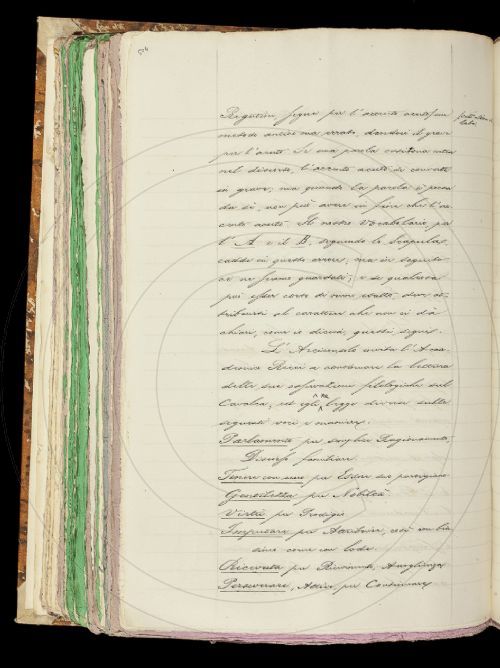 504
Rigutini segui per l'accento acuto un
metodo antico ma errato, dandoci il grave
per l'acuto. Se una parola ossitona entra
nel discorso, l'accento acuto si converte
in grave; ma quando la parola è
da sè, non può avere in fine che l'ac-
cento acuto. Il nostro Vocabolario per
l'A e il B, seguendo lo Scapula,
cadde in questo errore; ma in seguito
ce ne siamo guardati; e se qualcosa
può esser corso di meno esatto, deve at-
tribuirsi al carattere che non ci dà
chiari, come si dicono, questi segni.
L'Arciconsolo invita l'Acca-
demico Ricci a continuare la lettura
delle sue osservazioni filologiche sul
Cavalca, ed egli ne legge diverse sulle
seguenti voci e maniere.
Parlamento per semplice Ragionamento,
Discorso familiare.
Tenere con uno per Esser suo partigiano
Gentilezza per Nobiltà
Virtù per Prodigio
Imputare per Attribuire, così con bia-
simo come con lode.
Ricevuta per Ricevimento, Accoglienza
Perseverare, Attivo per Continuare